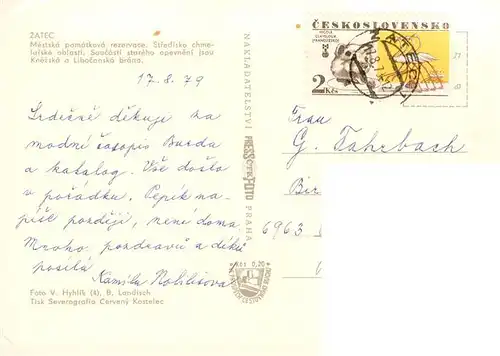 ŽATEC
Městská památková rezervace. Středisko chme-
lařské oblasti. Součástí starého opevnění jsou
Kněžská a Libočanská brána.
17.8.79
Srdečně děkuji za
modní časopis Burda
a katalog. Vše došlo
v pořádku. Pepík na-
píše později, není doma
Mnoho pozdravů a díků
posílá
Kamila
Foto V. Hyhlík (4), B. Landisch
Tisk Severografia Červený Kostelec
NAKLADATELSTVÍ PRESSFOTO PRAHA
Kčs 0,20
ČESKOSLOVENSKO
2 Kčs
Frau
G. Fahrbach
Bir
6963